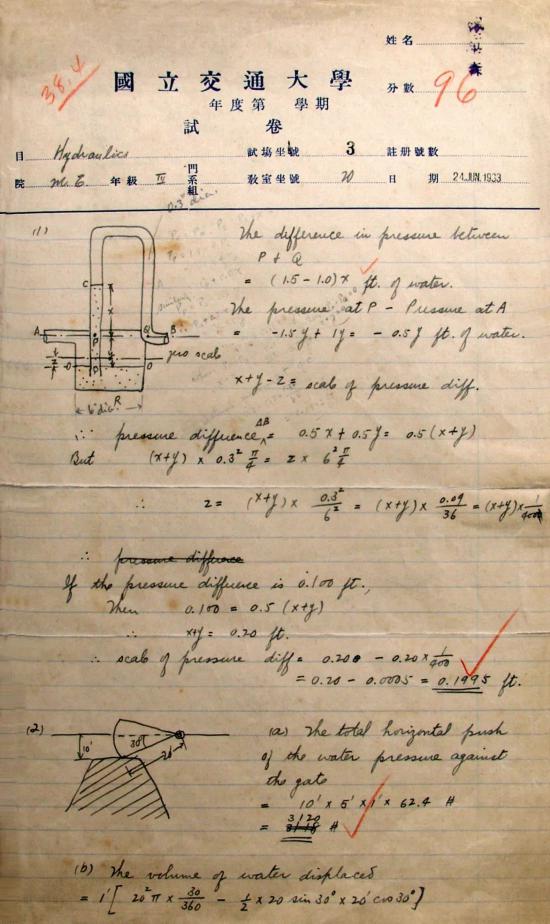 姓名
國立交通大學
38.4
分數 96
年度第 學期
試 卷
目 Hydraulics 試場坐號 3 註册號數
院 M.E. 年級 IV 門系組 教室坐號 20 日期 24 JUN. 1933
0.3" dia.
(1) The difference in pressure between
P & Q
= (1.5 - 1.0) x ft. of water.
The pressure at P - Pressure at A
= -1.5 y + 1 y = - 0.5 y ft. of water.
C
x
A P Q B
y
zero scale
z
O O
R
6" dia.
x+y - z = scale of pressure diff.
∴ pressure difference AB = 0.5 x + 0.5 y = 0.5 (x+y)
But (x+y) x 0.3² π/4 = z x 6² π/4
∴ z = (x+y) x 0.3²/6² = (x+y) x 0.09/36 = (x+y) x 1/400
∴ pressure difference
If the pressure difference is 0.100 ft.,
Then 0.100 = 0.5 (x+y)
∴ x+y = 0.20 ft.
∴ scale of pressure diff = 0.200 - 0.20 x 1/400
= 0.20 - 0.0005 = 0.1995 ft.
(2) (a) The total horizontal push
10' 30° 20'
of the water pressure against
the gate
= 10' x 5' x 1' x 62.4 #
= 3120 #
(b) The volume of water displaced
= 1' [ 20² π x 30/360 - 1/2 x 20 sin 30° x 20' cos 30° ]